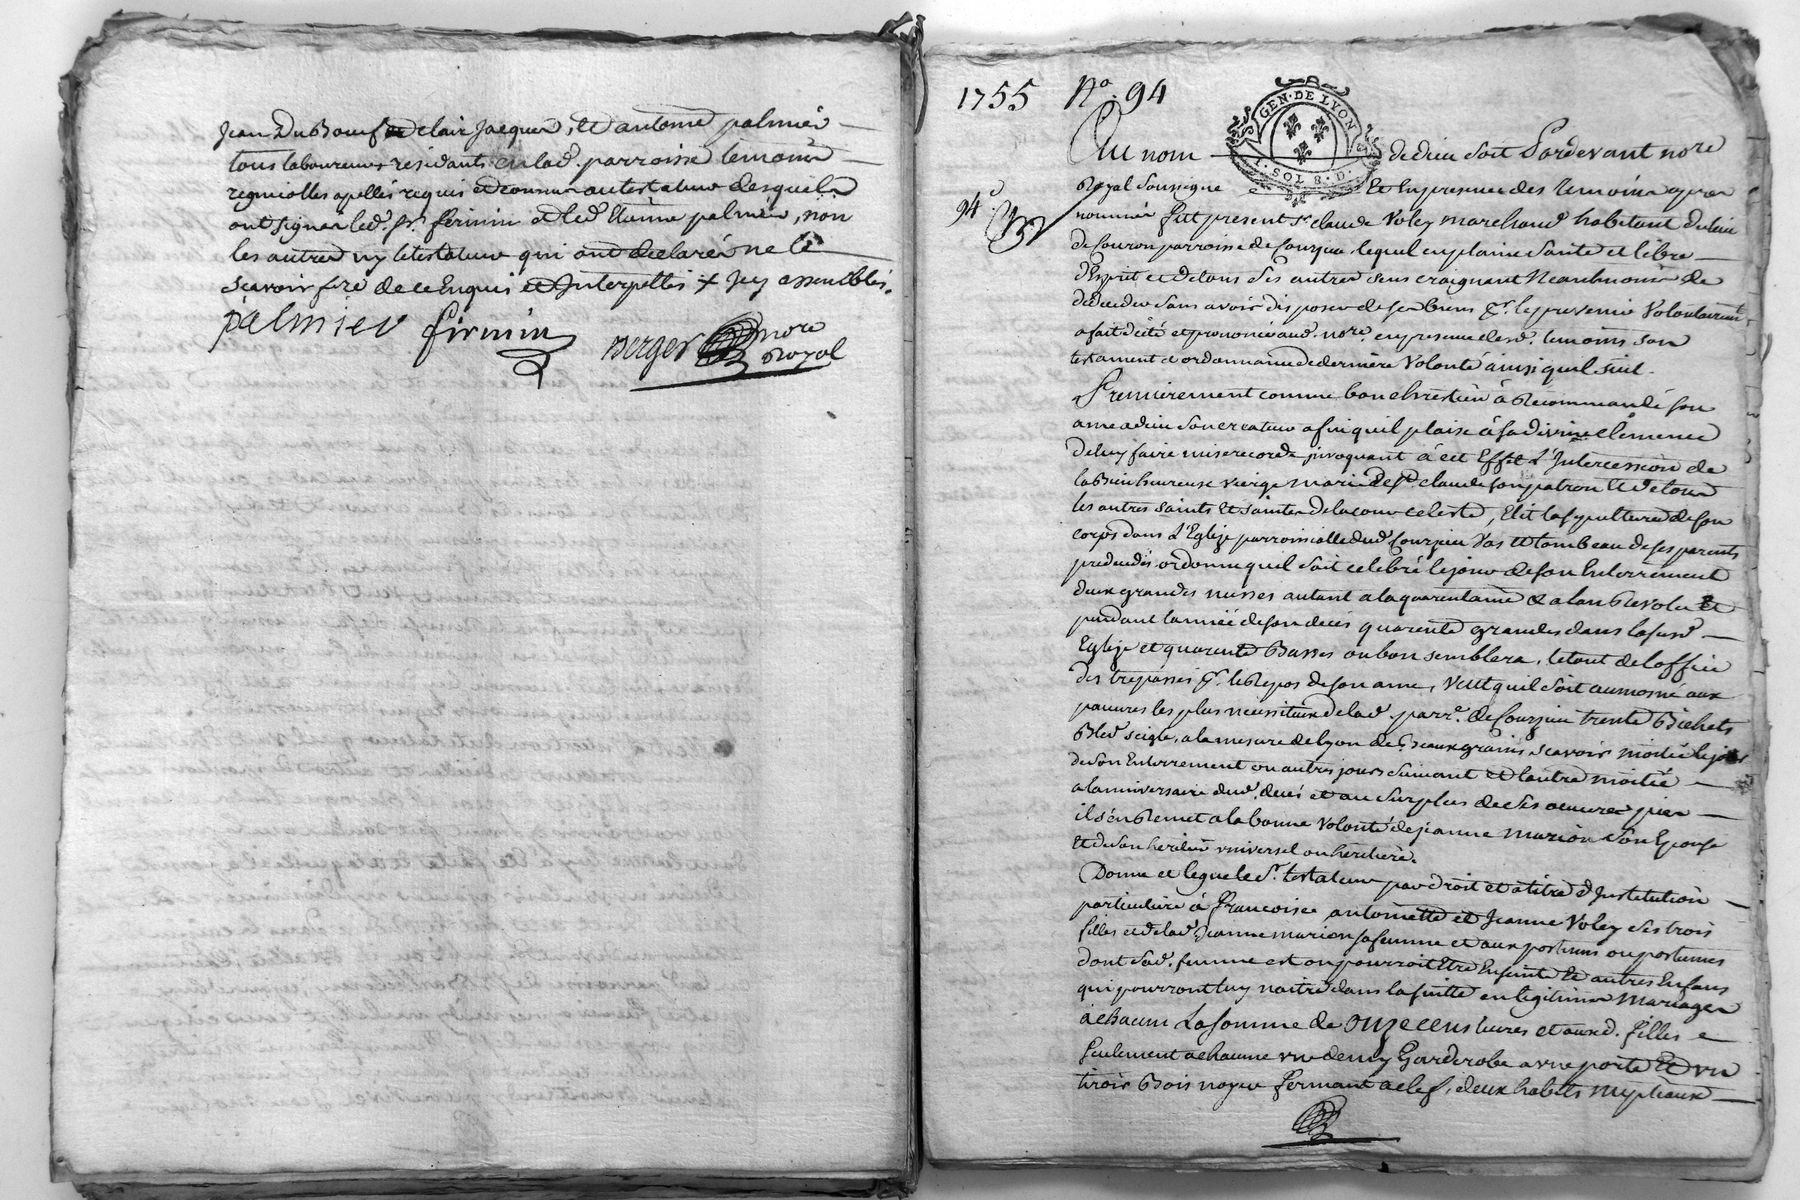 Jean Duboeuf clair Jacquer, et antoine palmier
tous laboureurs residants en lad. parroisse temoins
regnicolles apellés requis et connus au testateur desquels
ont signér led. sr. firmin et led. antoine palmier, non
les autres ny le testateur qui ont declarér ne le
scavoir fere de ce Enquis et Interpellés + Icy assemblés.
palmier firmin Berger nore
Royal
1755 No. 94
GEN. DE LYON
1. SOL 8. D.
Au nom de dieu soit Pardevant nore
94e
Royal soussigné Et En presence des temoins apres
nommés fut present sr. claude Voley marchand habitant du lieu
de parroisse de Courzieu lequel en plaine santé et libre
d'Esprit et de tous ses autres sens craignant Neantmoins de
deceder sans avoir disposer de ses biens pr. le prevenir Volontairemt.
a fait dicté et prononcé aud. nore. en presence desd. temoins son
testament et ordonnance de derniere Volonté ainsi quil suit.
Premierement comme bon chretien à Recommandé son
ame a dieu son createur afin quil plaise à sa divine Clemence
de luy faire misericorde invoquant à cet Effet L'Intercession de
la Bien heureuse vierge marie de st. claude son patron et de tous
les autres saints et saintes de la cour celeste, Elit la sepulture de son
corps dans L'Eglize parroissialle dud. Courzieu Vas et tombeau de ses parents
predecedés ordonne quil soit celebré le jour de son Enterrement
deux grandes messes autant a la quarantaine & a lan Revolu Et
pendant lannée de son deces quarente grandes dans la susd.
Eglize et quarente Basses ou bon semblera, le tout de loffice
des trépassés pr. le Repos de son ame, Veut quil soit aumosné aux
pauvres les plus necessiteux de lad. parre. de Courzieu trente Bichets
Bled seigle, a la mesure de lyon de beaux grains, scavoir moitié le jour
de son Enterrement ou autres jours suivant et lautre moitié
a lanniversaire dud. decés et au surplus de ses oeuvres pies
il s'en Remet a la bonne Volonté de jeanne marion son Epouse
Et de son heritier universel ou heritiere.
Donne et legue le sr. testateur par droit et a titre d'Institution
particuliere à francoise antoinette et Jeanne Voley ses trois
filles et de lad. Jeanne marion sa femme et aux postumes ou postumes
dont sad. femme est ou pourroit Etre Enceinte Et autres Enfans
qui pourront luy naitre dans la suitte en legitimes Mariages
à chacun La somme de onze cens livres et auxd. filles
seulement a chacune une demy Garderobe a une porte Et un
tiroir Bois noyer fermant a clef, deux habits nuptiaux